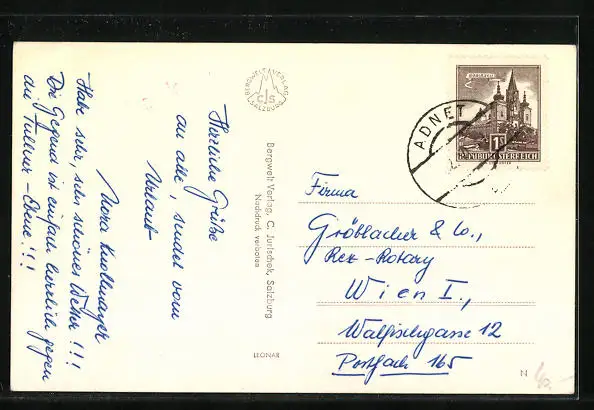 Herzliche Grüße
an alle, sendet vom
Urlaub
Nora Knollmayer
Habe sehr, sehr schönes Wetter!!!
Die Gegend ist einfach herrlich gegen
die Tullner-Ebene!!!
BERGWELT VERLAG
CJS
SALZBURG
Bergwelt Verlag, C. Jurischek, Salzburg
Nachdruck verboten
LEONAR
MARIAZELL
1S
REPUBLIK ÖSTERREICH
ADNET
Firma
Größbacher & Co.,
Rex-Rotary
Wien I.,
Walfischgasse 12
Postfach 165
N